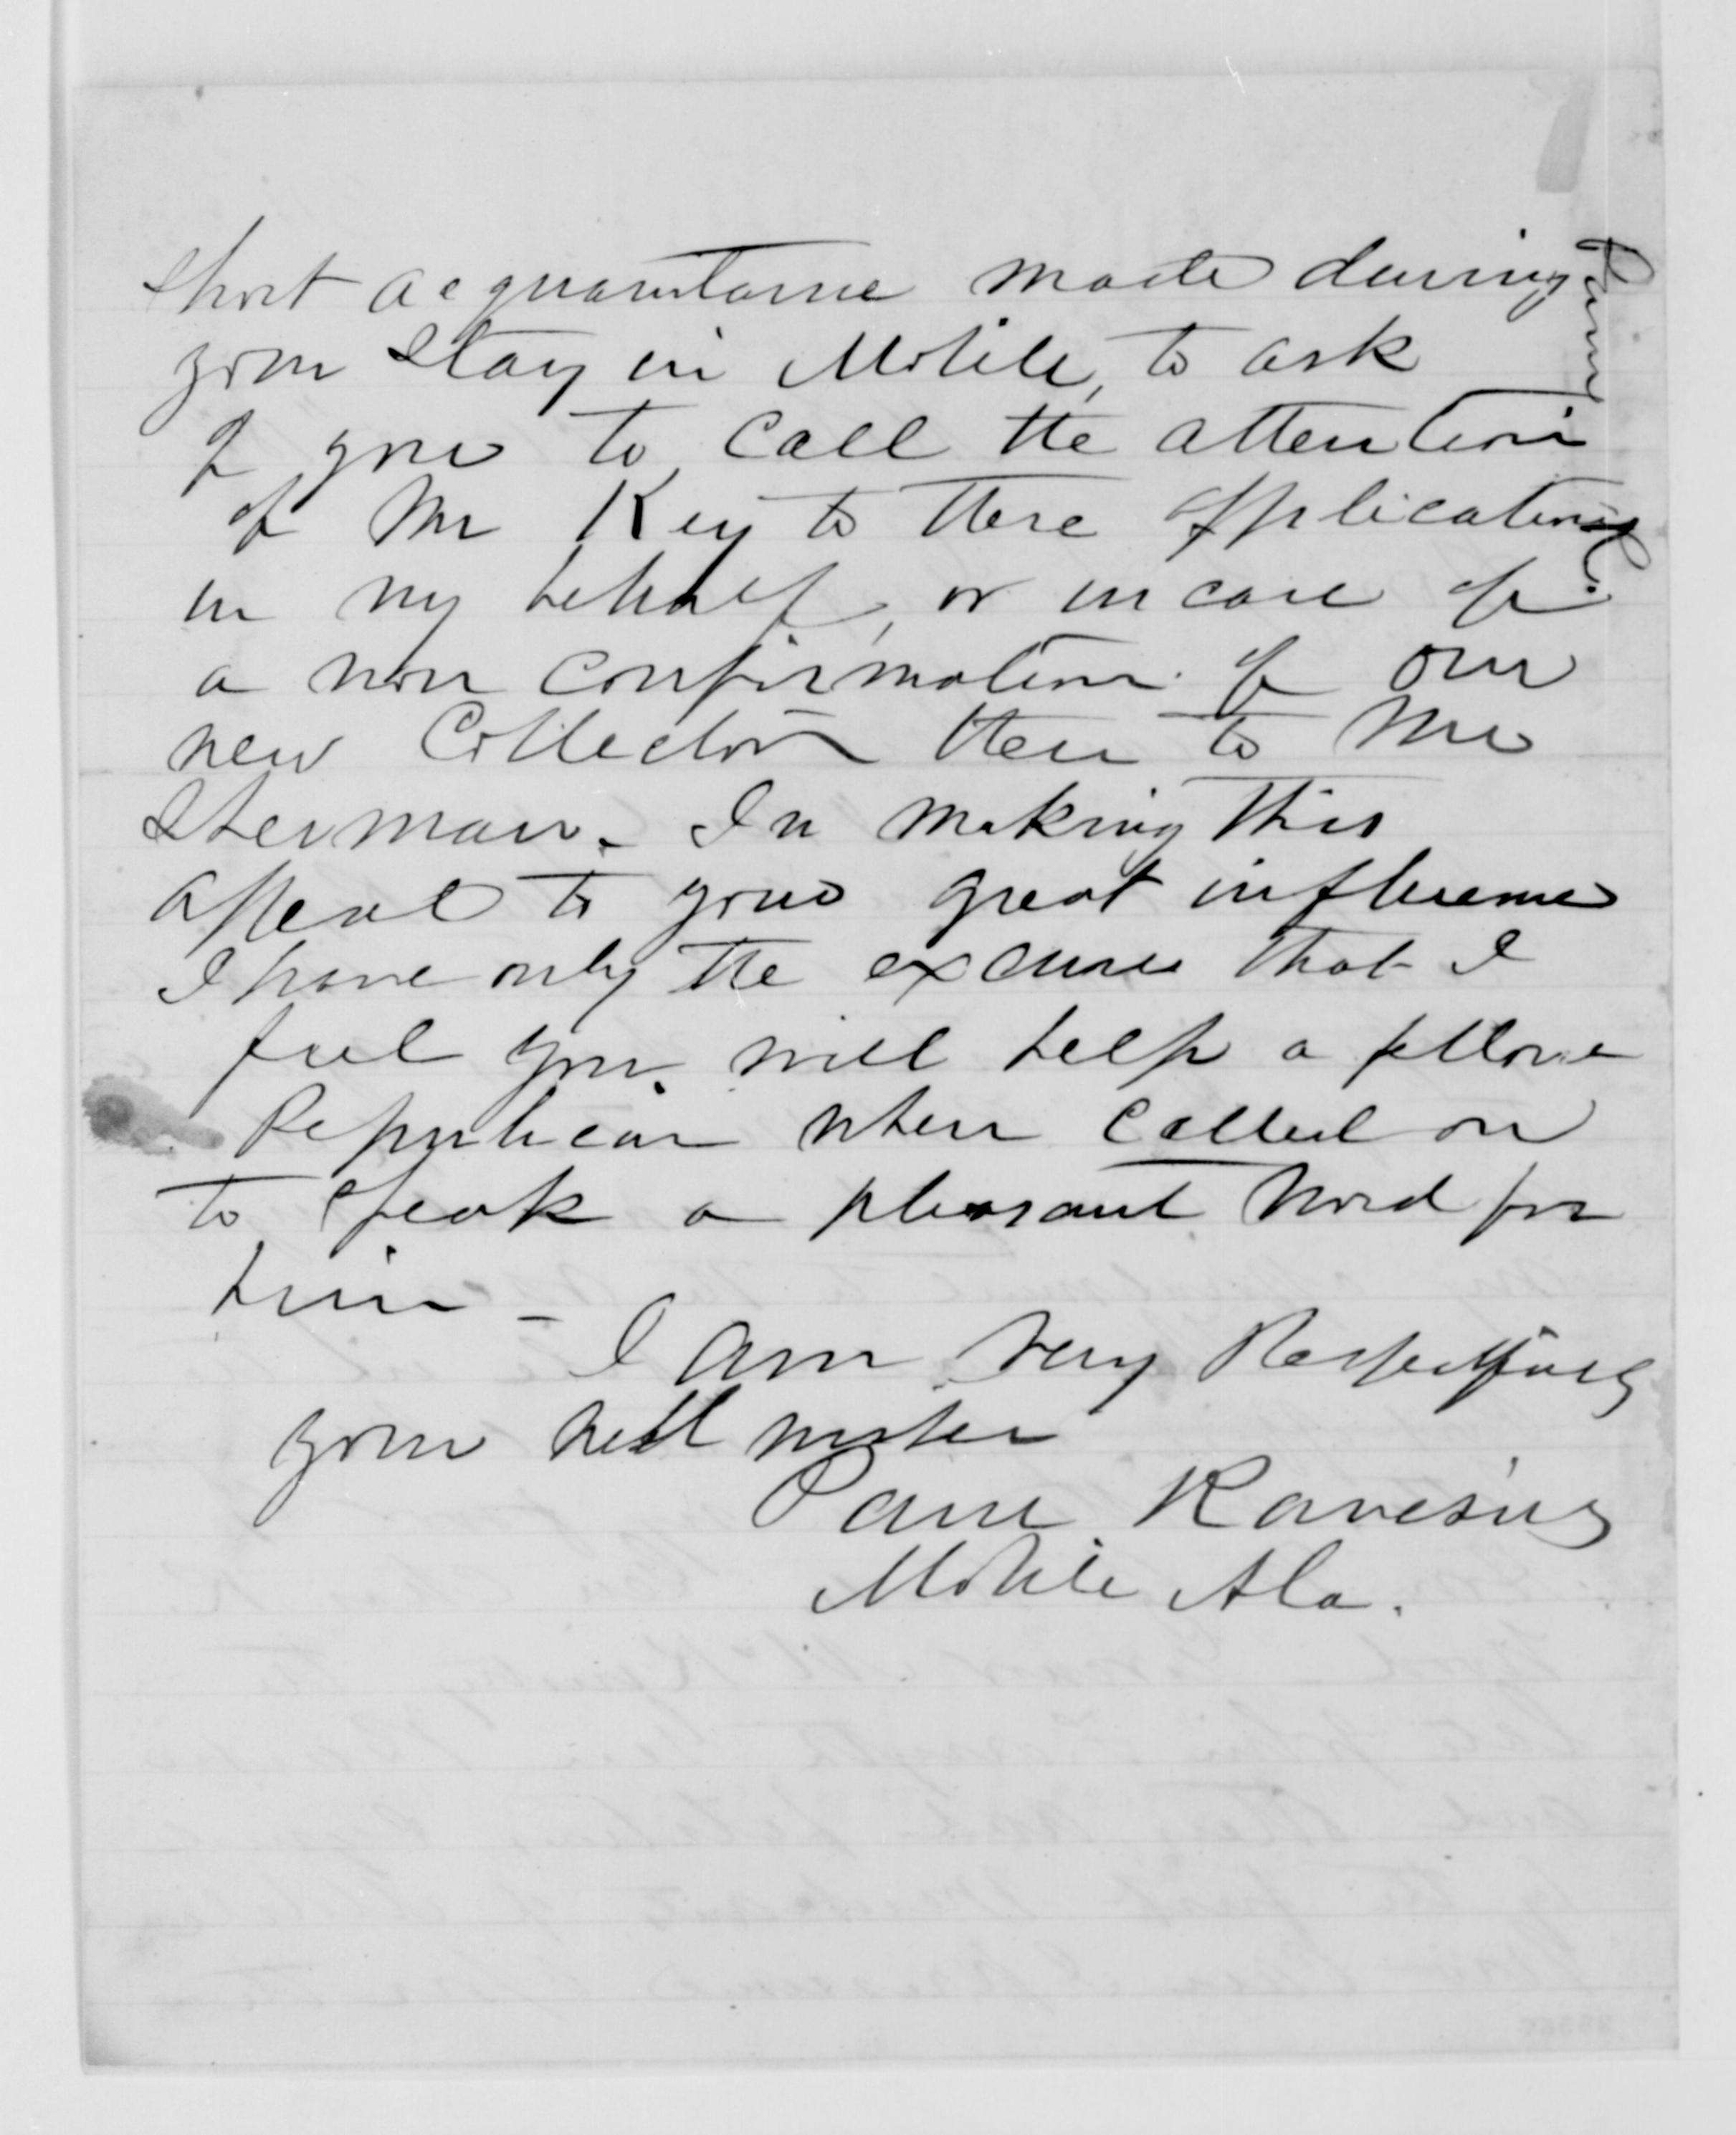 short acquaintance made during
your stay in Mobile, to ask
of you to call the attention
of Mr Key to these applications
in my behalf, or in case of
a non confirmation of our
new Collector then to Mr
Sherman. In making this
appeal to your great influence
I have only the excuse that I
feel you will help a fellow
Republican when called on
to speak a pleasant word for
him -
I am very Respectfully
your well wisher
Paul Ravesies
Mobile Ala.